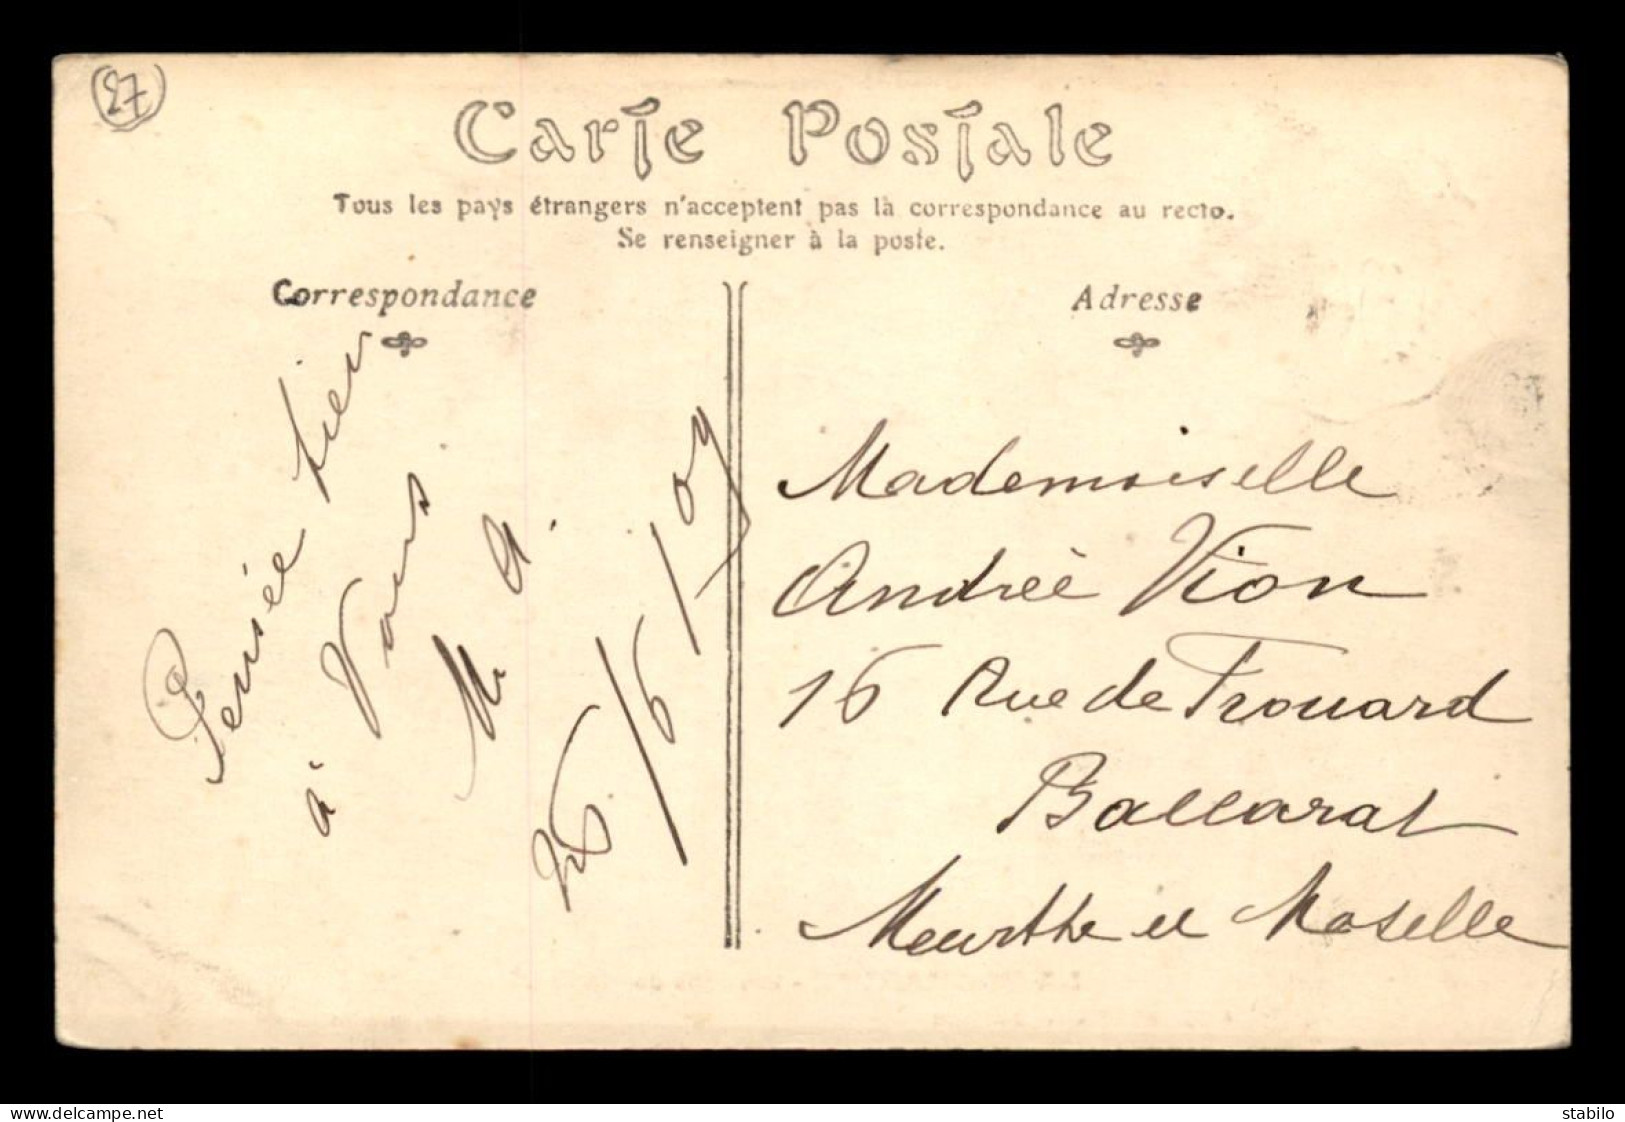 27
Carte Postale
Tous les pays étrangers n'acceptent pas la correspondance au recto.
Se renseigner à la poste.
Correspondance
Pensée
à Vous
M a.
26/6/07
Adresse
Mademoiselle
Andrée Vion
16 Rue de Frouard
Baccarat
Meurthe et Moselle
www.delcampe.net
stabilo